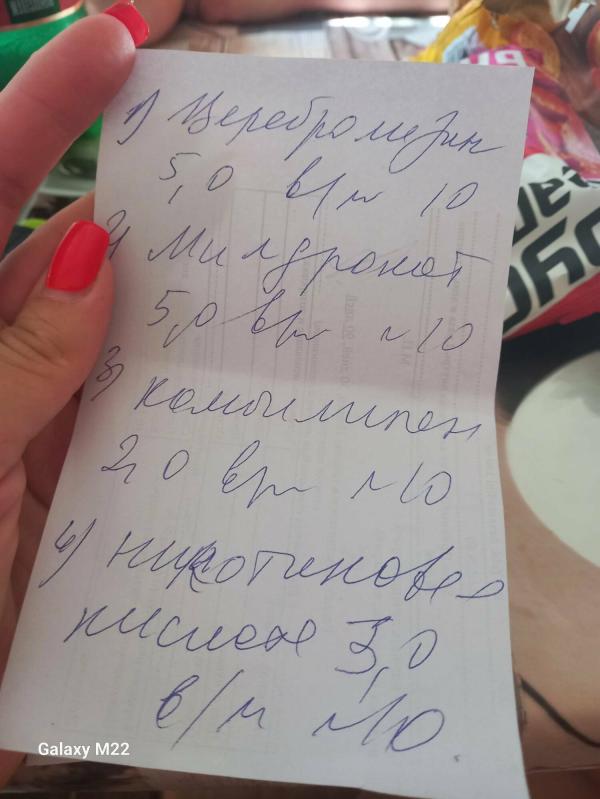 1) Церебролизин
5,0 в/м 10
2) Милдронат
5,0 в/м N10
3) Комбилипен
2,0 в/м N10
4) Никотиновая
кислота 3,0
в/м N10
Galaxy M22